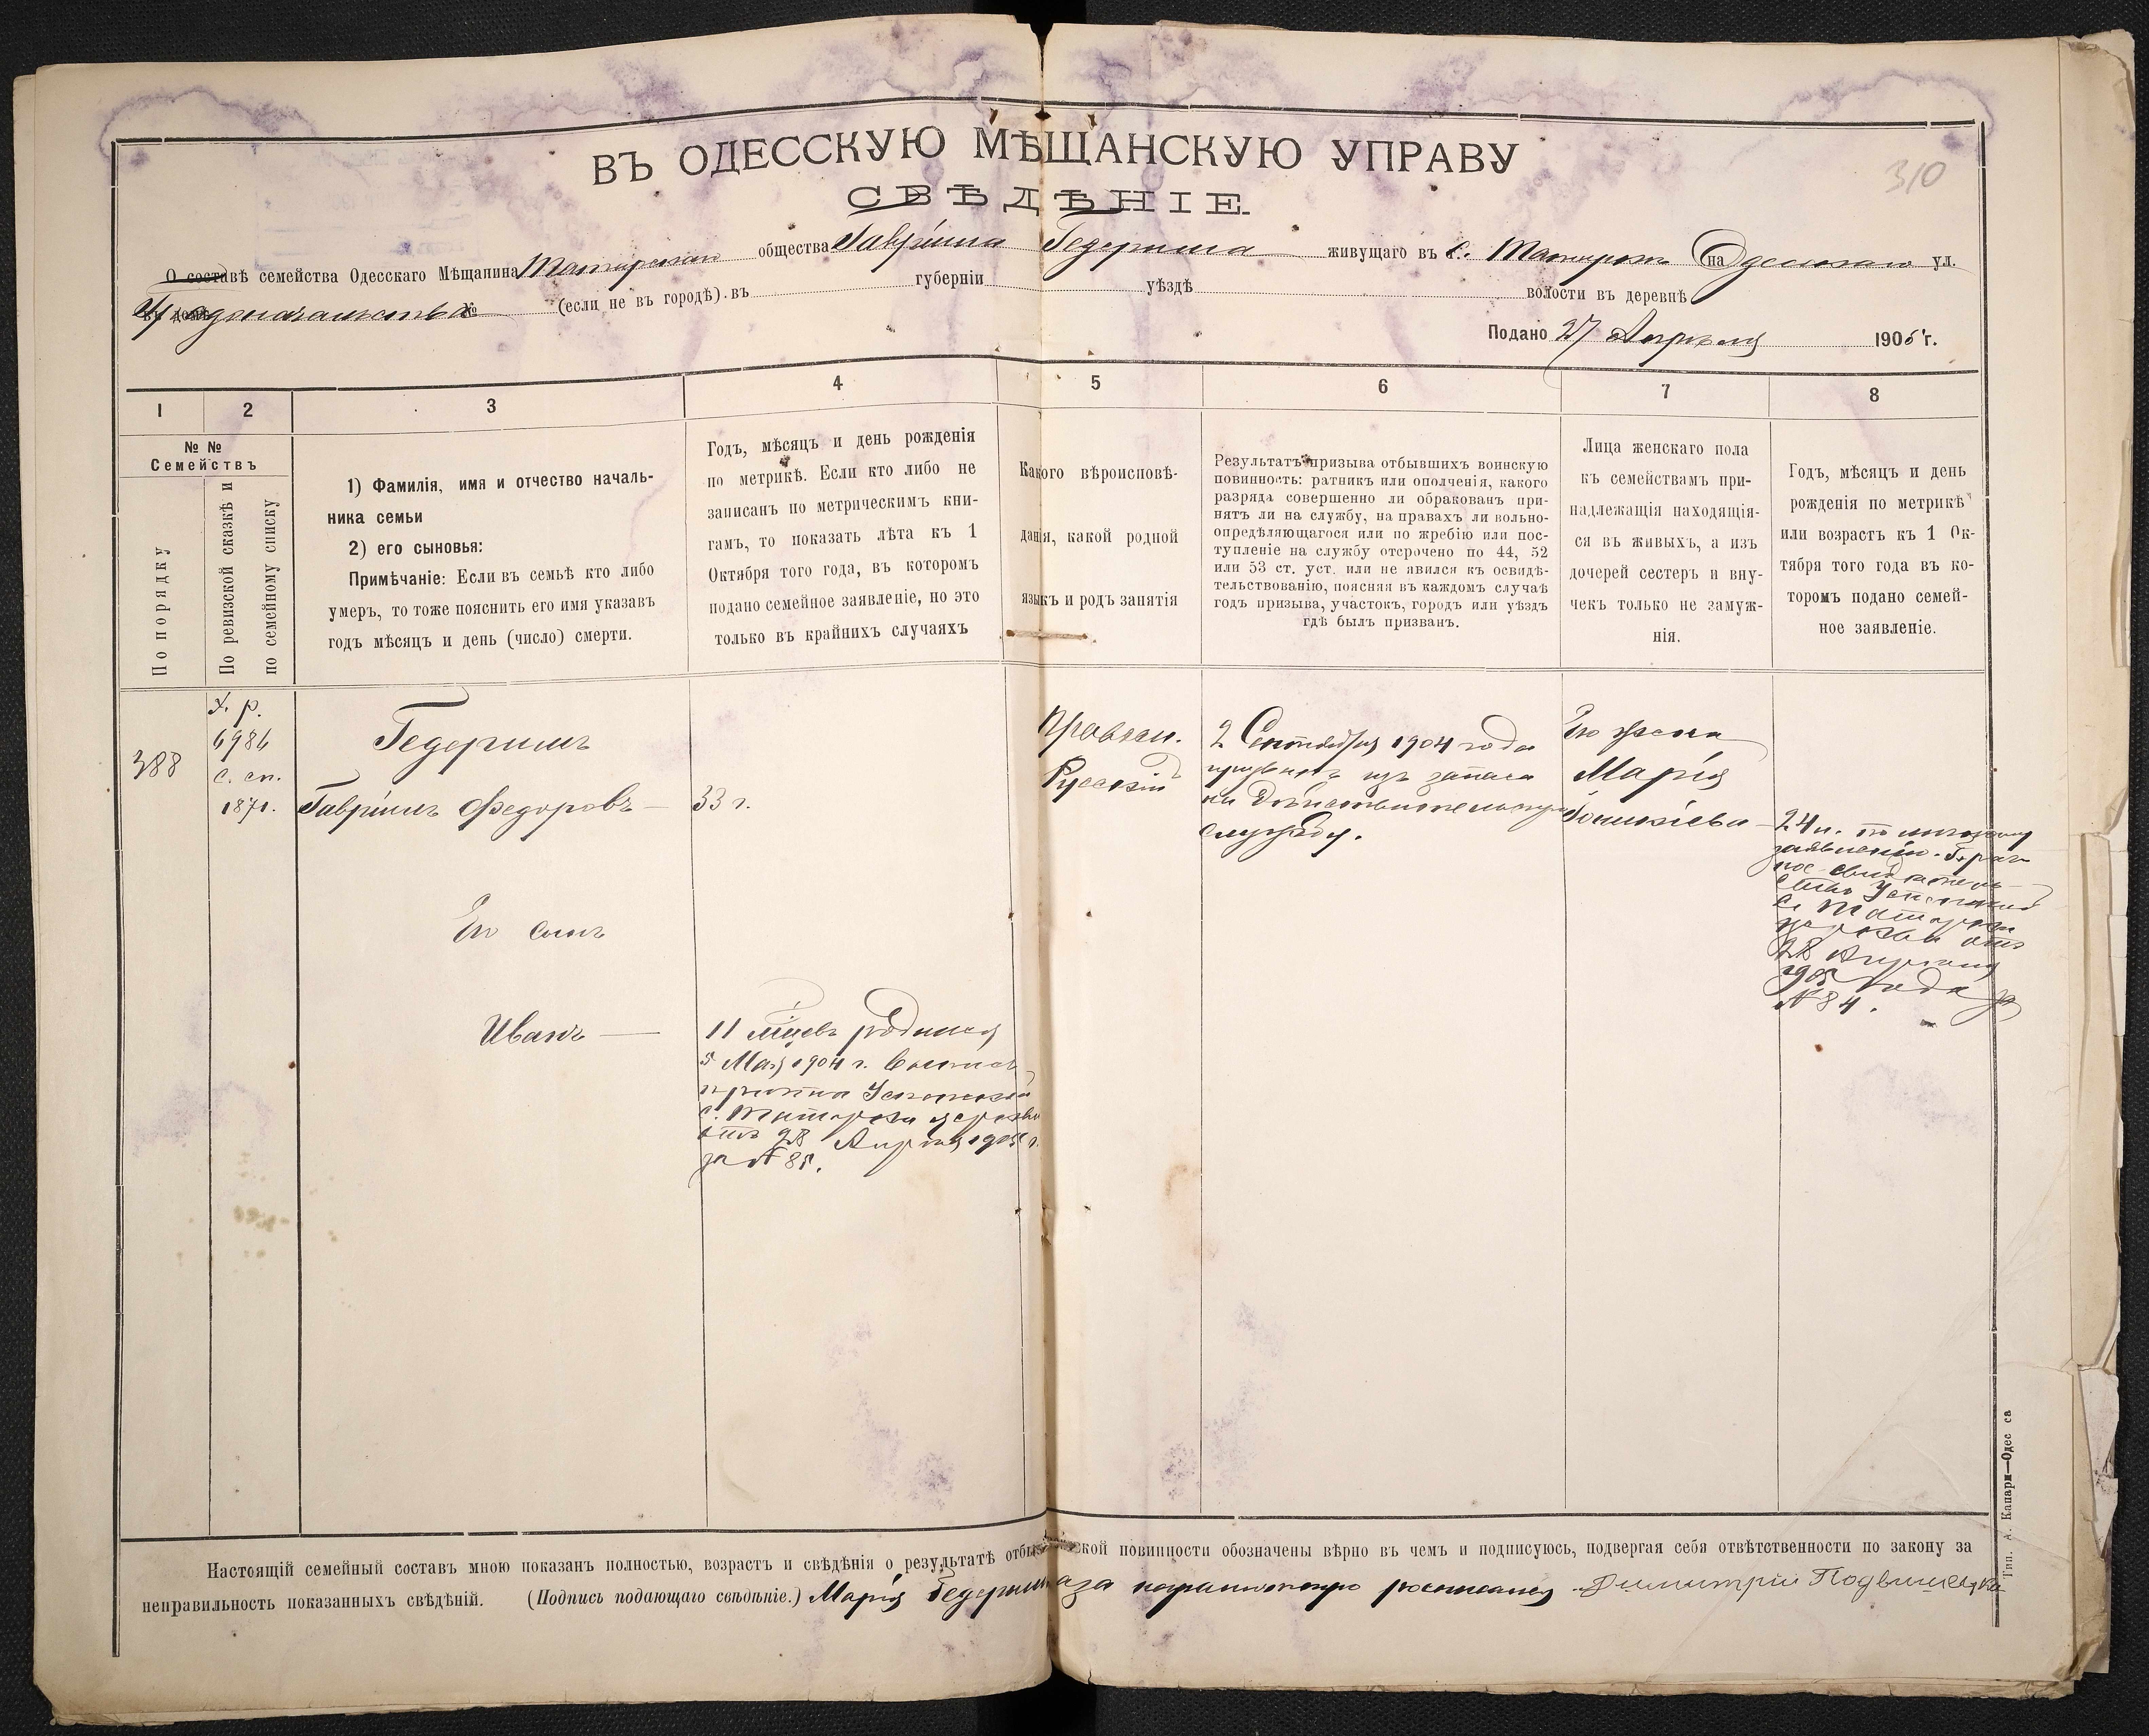 310
ВЪ ОДЕССКУЮ МѢЩАНСКУЮ УПРАВУ
СВѢДѢНІЕ.
О составѣ семейства Одесскаго Мѣщанина Татарскаго общества Гавріила Гедерима живущаго въ с. Татарки на Одесскаго ул.
Градоначальства № (если не въ городѣ) въ губерніи уѣздѣ волости въ деревнѣ
Подано 27 Апрѣля 1905 г.
1 2 3 4 5 6 7 8
№ №
Семействъ
По порядку
По ревизской сказкѣ и
по семейному списку
1) Фамилія, имя и отчество началь-
ника семьи
2) его сыновья:
Примѣчаніе: Если въ семьѣ кто либо
умеръ, то тоже пояснить его имя указавъ
годъ мѣсяцъ и день (число) смерти.
Годъ, мѣсяцъ и день рожденія
по метрикѣ. Если кто либо не
записанъ по метрическимъ кни-
гамъ, то показать лѣта къ 1
Октября того года, въ которомъ
подано семейное заявленіе, но это
только въ крайнихъ случаяхъ
Какого вѣроисповѣ-
данія, какой родной
языкъ и родъ занятія
Результатъ призыва отбывшихъ воинскую
повинность: ратникъ или ополченія, какого
разряда совершенно ли обракованъ при-
нятъ ли на службу, на правахъ ли вольно-
опредѣляющагося или по жребію или пос-
тупленіе на службу отсрочено по 44, 52
или 53 ст. уст. или не явился къ освидѣ-
тельствованію, поясняя въ каждомъ случаѣ
годъ призыва, участокъ, городъ или уѣздъ
гдѣ былъ призванъ.
Лица женскаго пола
къ семействамъ при-
надлежащія находящія-
ся въ живыхъ, а изъ
дочерей сестеръ и вну-
чекъ только не замуж-
нія.
Годъ, мѣсяцъ и день
рожденія по метрикѣ
или возрастъ къ 1 Ок-
тября того года въ ко-
торомъ подано семей-
ное заявленіе.
388
X. р.
6986
с. сп.
1871.
Гедеримъ
Гавріилъ Федоровъ — 33 г.
Его сынъ
Иванъ —
11 мѣцевъ родился
5 Мая 1904 г. выпись
прич­та Успенской
с. Татарки церкви
отъ 28 Апрѣля 1905 г.
за № 85.
Правосл.
Русскій
2 Сентября 1904 года
призванъ изъ запаса
на дѣйствительную
службу.
Его жена
Марія
24 л. по личному
заявленію. Брач-
ное свидѣтель-
ство Успенской
с. Татарки
церкви отъ
28 Апрѣля
1905 года за
№ 84.
Настоящій семейный составъ мною показанъ полностью, возрастъ и свѣдѣнія о результатѣ отбы ской повинности обозначены вѣрно въ чемъ и подписуюсь, подвергая себя отвѣтственности по закону за
неправильность показанныхъ свѣдѣній. (Подпись подающаго свѣдѣніе.) Марія Гедерима за неграмотную росписался Димитрій
Тип. А. Капари—Одес са